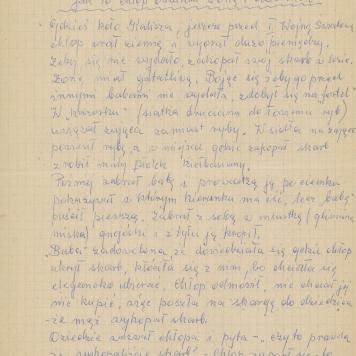 Jak to chłop
Gdzieś koło Kalisza, jeszcze przed I Wojną Światową
chłop orał ziemię i wyorał dużo pieniędzy.
Żeby się nie wydało, zakopał swój skarb w lesie.
Żonę miał gadatliwą. Bojąc się żeby go przed
innymi babami nie wydała, zdobył się na "fortel"
W "    " (siatka druciana do łowienia ryb)
wsadził zająca zamiast ryby. W sidła na zające
powiesił rybę, a w miejscu gdzie zakopał skarb
zrobił mały płotek kiełbasiany.
Później zabrał babę i prowadzą ją po ciemku
pokazywał w którym kierunku ma iść, lecz "babę"
puścił pierwszą. Zabrał z sobą w miastkę (gliniana
miska) gnojówki i z tyłu ją kropił.
Baba zadowolona, że dowiedziała się gdzie chłop
ukrył skarb, kłóciła się z nim, bo chciała się
elegancko ubierać. Chłop odmówił, nie chciał jej
nic kupić, więc poszła na skargę do dziedzica
- że mąż wykopał skarb.
Dziedzic wezwał chłopa i pyta - "czy to prawda
że wykopaliście skarb" - Chłop